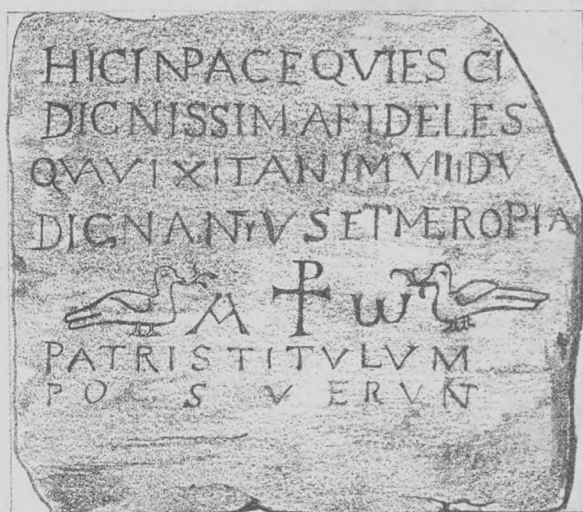 HICINPACEQVIESCI
DIGNISSIMAFIDELES
QVAVIXITANIMVIIIIDV
DIGNANTIVSETMEROPIA
A ⳨ ω
PATRISTITVLVM
POSVERVNT